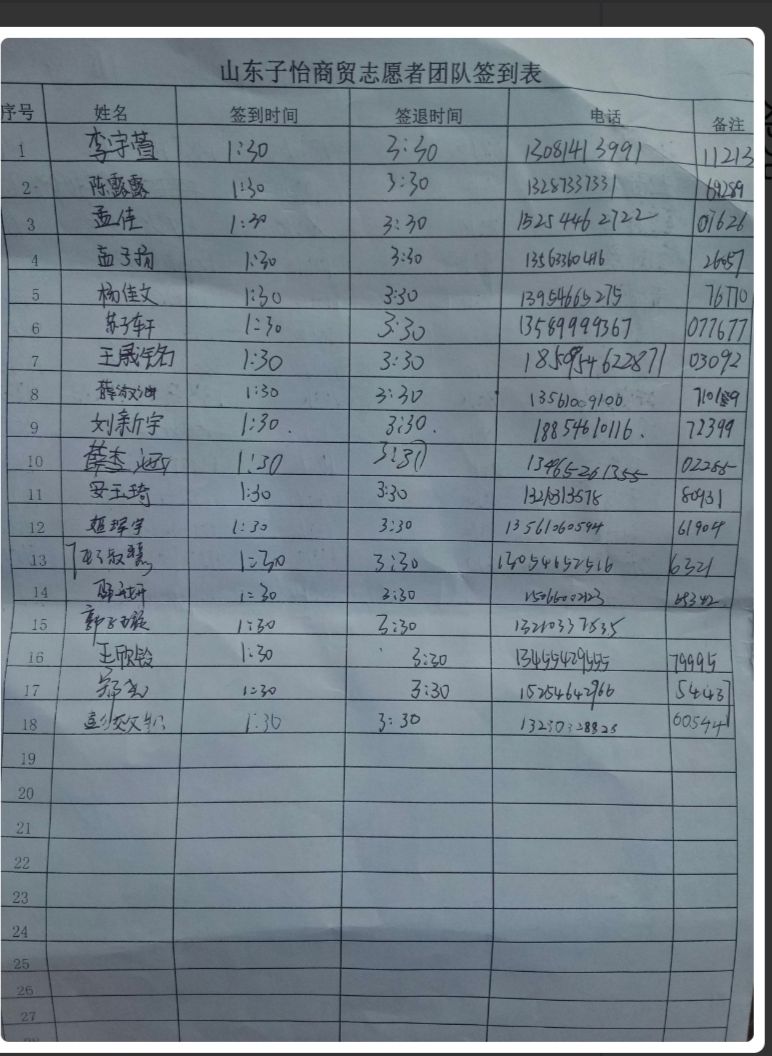 山东子怡商贸志愿者团队签到表
序号 姓名 签到时间 签退时间 电话 备注
1 李宇萱 1:30 3:30 13081413991 11213
2 陈露露 1:30 3:30 13287337331 69289
3 孟佳 1:30 3:30 15254462722 01626
4 孟子扬 1:30 3:30 13563360416 26057
5 杨佳文 1:30 3:30 13954665275 76770
6 苏子轩 1:30 3:30 13589999367 077677
7 王晟铭 1:30 3:30 1850954622871 03092
8 薛淑 1:30 3:30 13561009100
9 刘新宇 1:30. 3:30. 18854610116. 72399
10 1:30 3:30 13465261355 02285
11 安玉琦 1:30 3:30 80931
12 姬珲宇 1:30 3:30 13561060594 61904
13 1:30 3:30 13054652516 6321
14 1:30 3:30
15 1:30 3:30 13210337535
16 王欣铃 1:30 3:30 13455429555 79995
17 1:30 3:30 15254642966 54437
18 1:30 3:30 60544
19
20
21
22
23
24
25
26
27